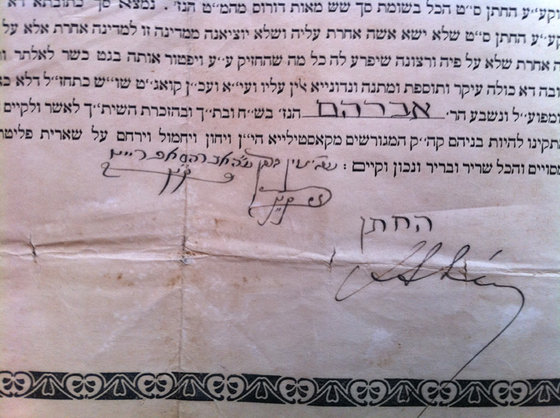 וקע״ע החתן ס״ט הכל בשומת סך שש מאות דורוס מהמ״ט הנז׳. נמצא סך כתובתא דא
קע״ע החתן ס״ט שלא ישא אשה אחרת עליה ושלא יוציאנה ממדינה זו למדינה אחרת אלא על
ה אחרת שלא על פיה ורצונה שיפרע לה כל מה שהחזיק ע״ע ויפטור אותה בגט כשר לאלתר ו
ובה דא כולה עיקר ותוספת ומתנה ונדונייא אין עליו ועי״א ועב״ן קואג״ט שו״ש כתחו״ל דלא כא
ומפוע״ל ונשבע הר׳ אברהם הנז׳ בש״ח ובת״ך ובהזכרת השית״ך לאשר ולקיים
תקינו להיות בניהם קה״ק המגורשים מקאסטילייא הי״ן ויחון ויחמול וירחם על שארית פליטת
מסויים והכל שריר ובריר ונכון וקיים:
החתן